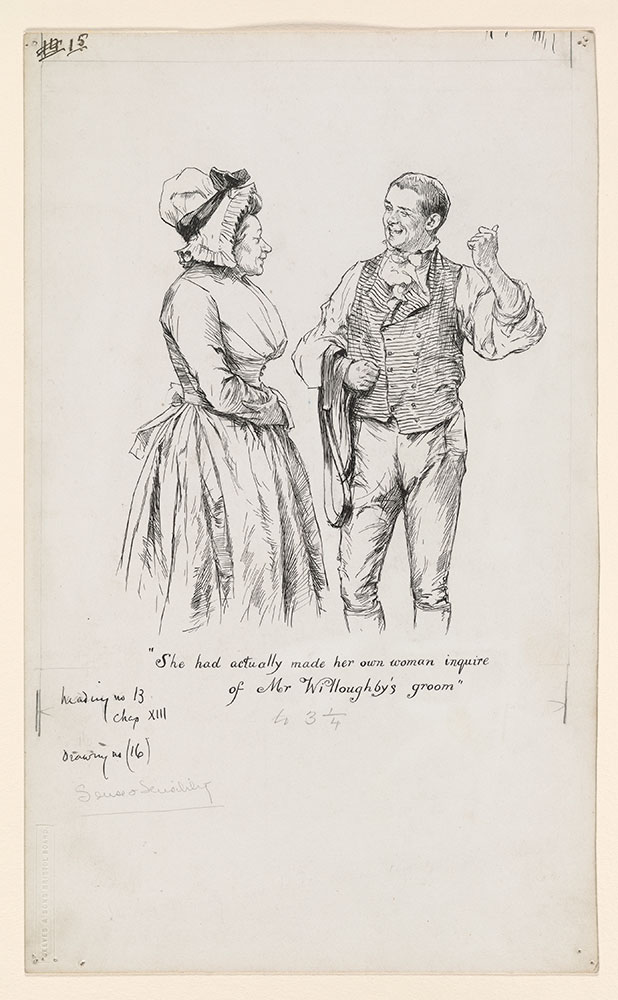 15
"She had actually made her own woman inquire
of Mr Willoughby's groom"
heading no 13
Chap XIII
to 3 1/4
Drawing no (16)
Sense & Sensibility